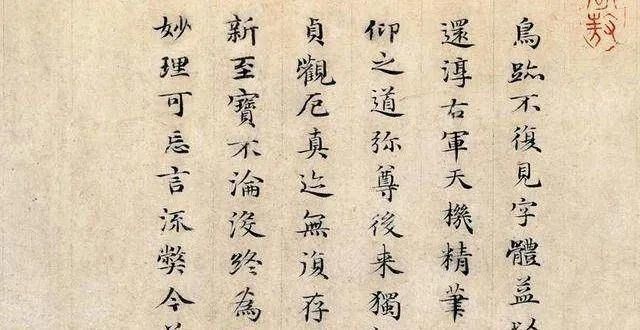 鳥跡不復見字體益
還淳右軍天機精筆
仰之道弥尊後来獨
貞觀厄真迹無復存
新至寶不淪没終為
妙理可忘言流弊今